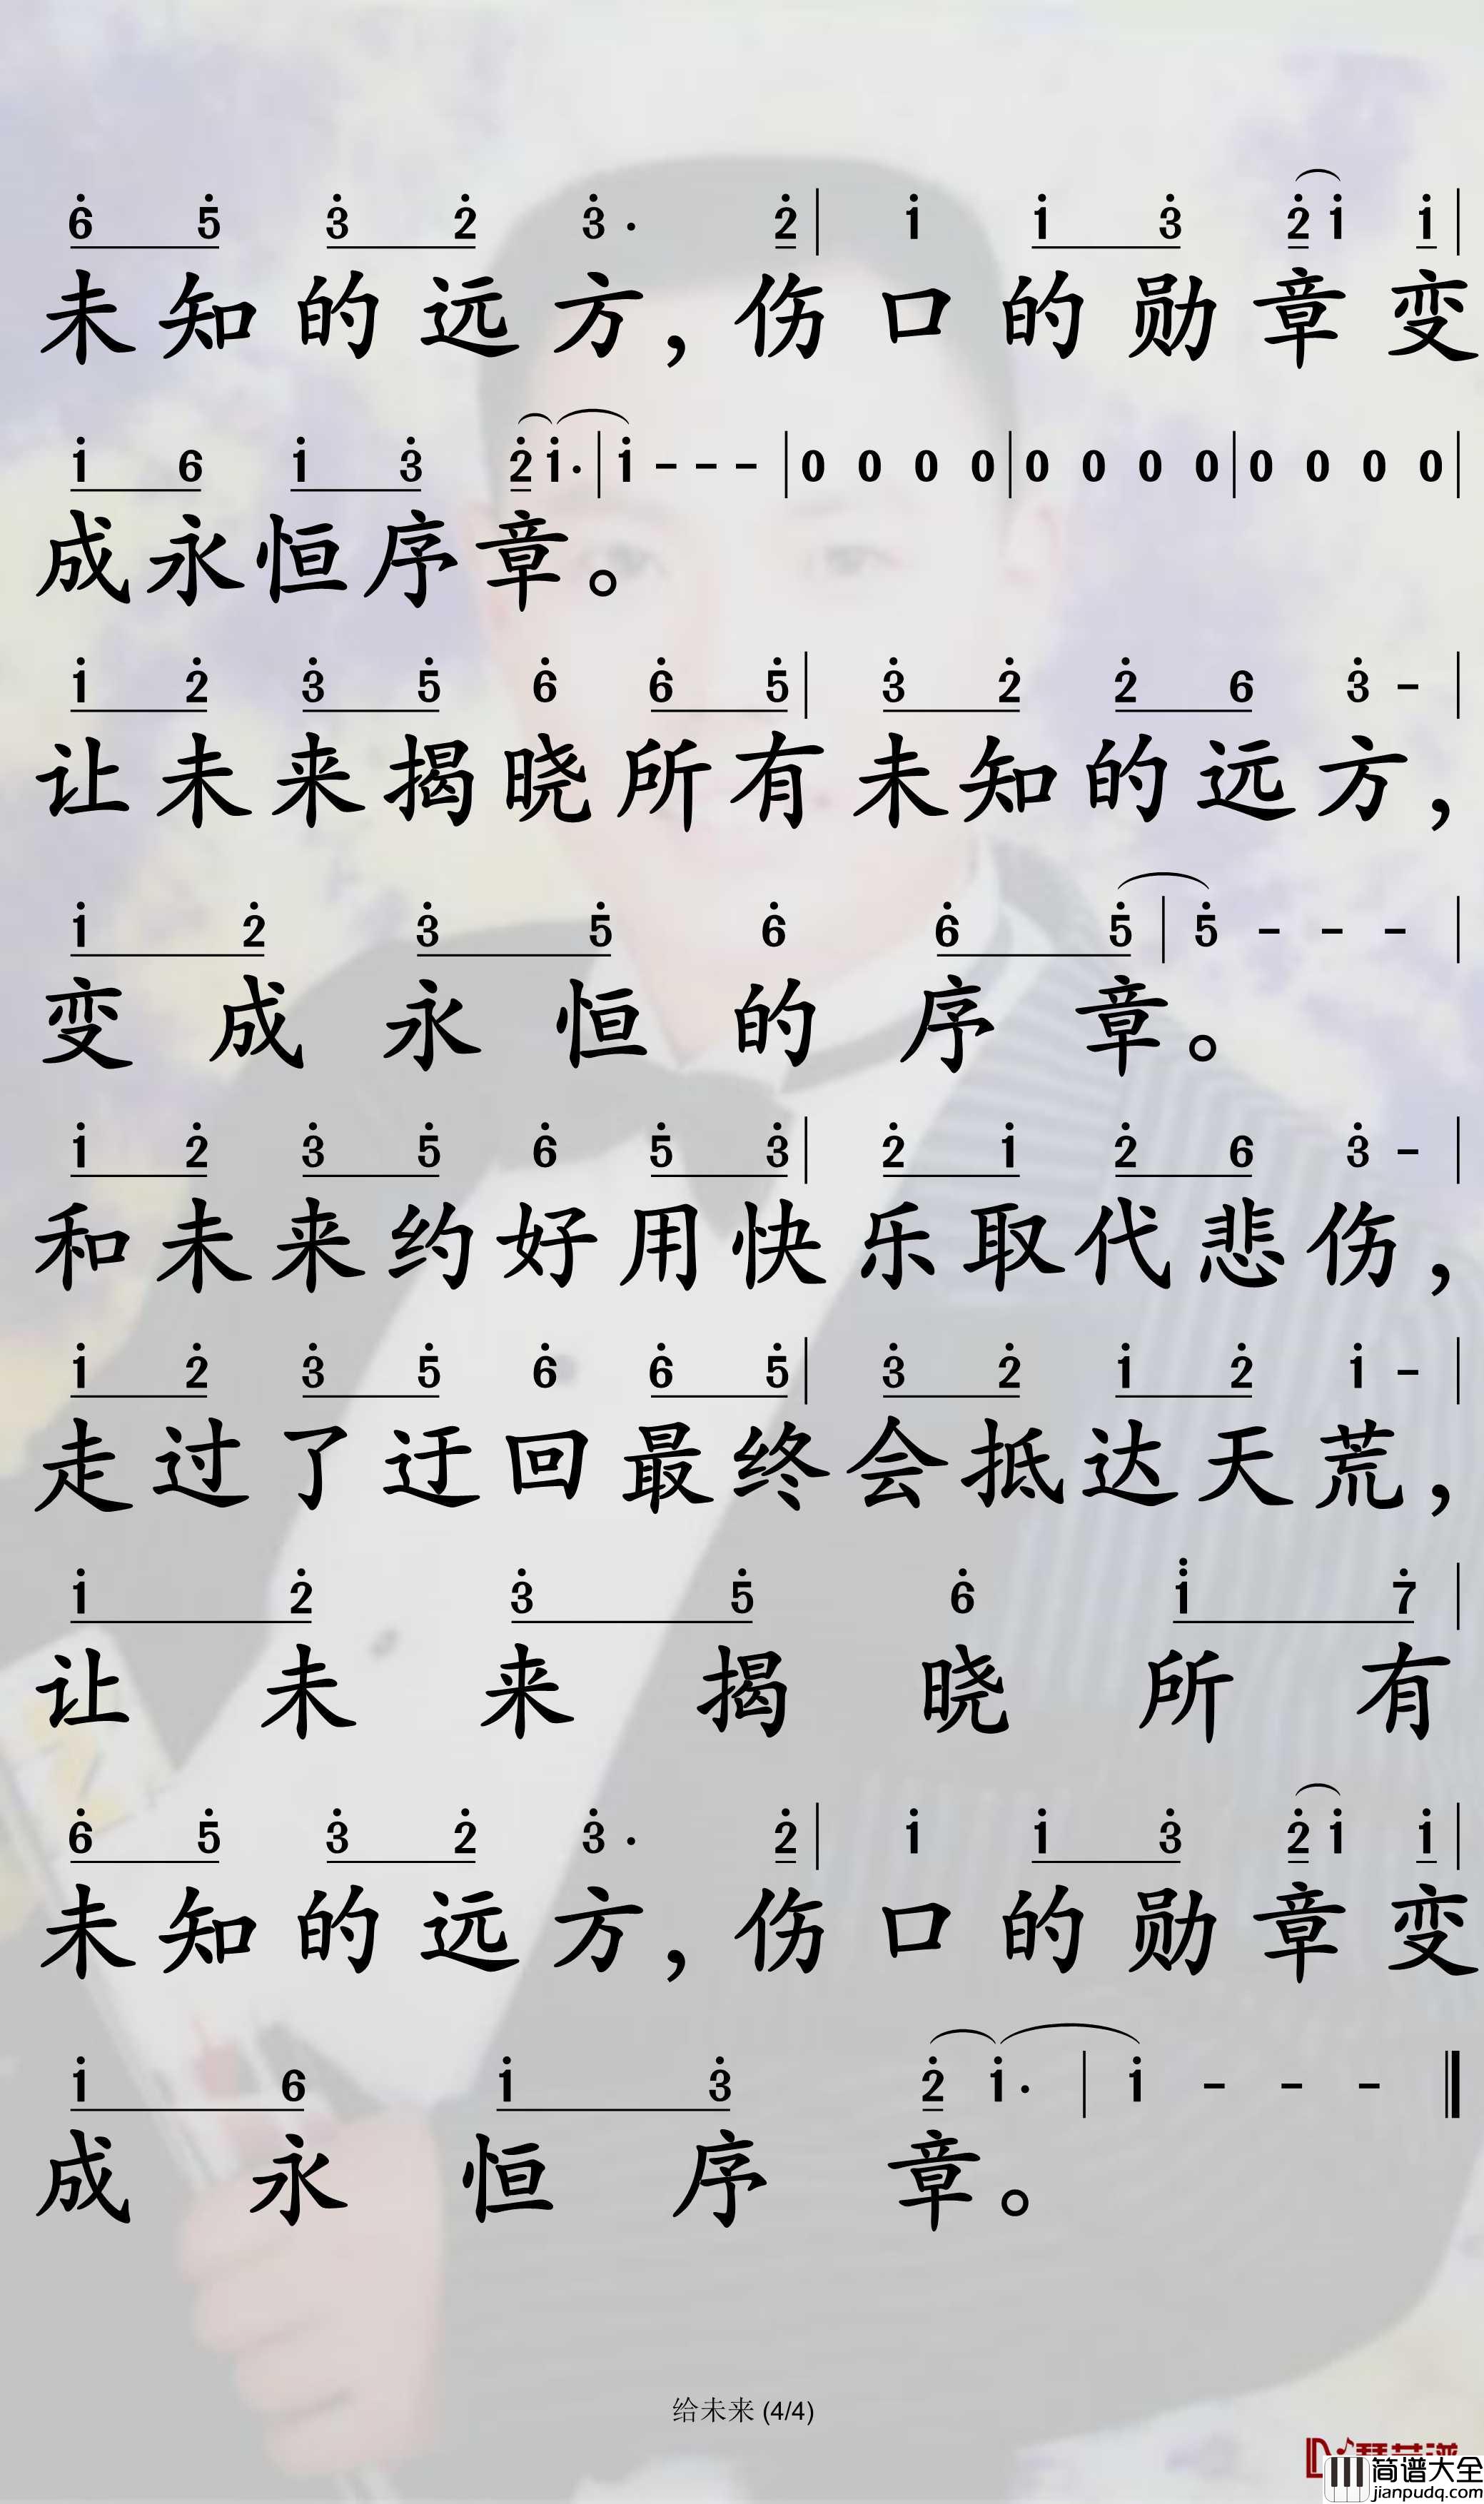 6 5 3 2 3 · 2 | 1 1 3 2 1 1 |
未知的远方，伤口的勋章变
1 6 1 3 2 1 · | 1 - - - | 0 0 0 0 | 0 0 0 0 | 0 0 0 0 |
成永恒序章。
1 2 3 5 6 6 5 | 3 2 2 6 3 - |
让未来揭晓所有未知的远方，
1 2 3 5 6 6 5 | 5 - - - |
变成永恒的序章。
1 2 3 5 6 5 3 | 2 1 2 6 3 - |
和未来约好用快乐取代悲伤，
1 2 3 5 6 6 5 | 3 2 1 2 1 - |
走过了迂回最终会抵达天荒，
1 2 3 5 6 1 7 |
让未来揭晓所有
6 5 3 2 3 · 2 | 1 1 3 2 1 1 |
未知的远方，伤口的勋章变
1 6 1 3 2 1 · | 1 - - - ‖
成永恒序章。
给未来 (4/4)
简谱大全
jianpudq.com